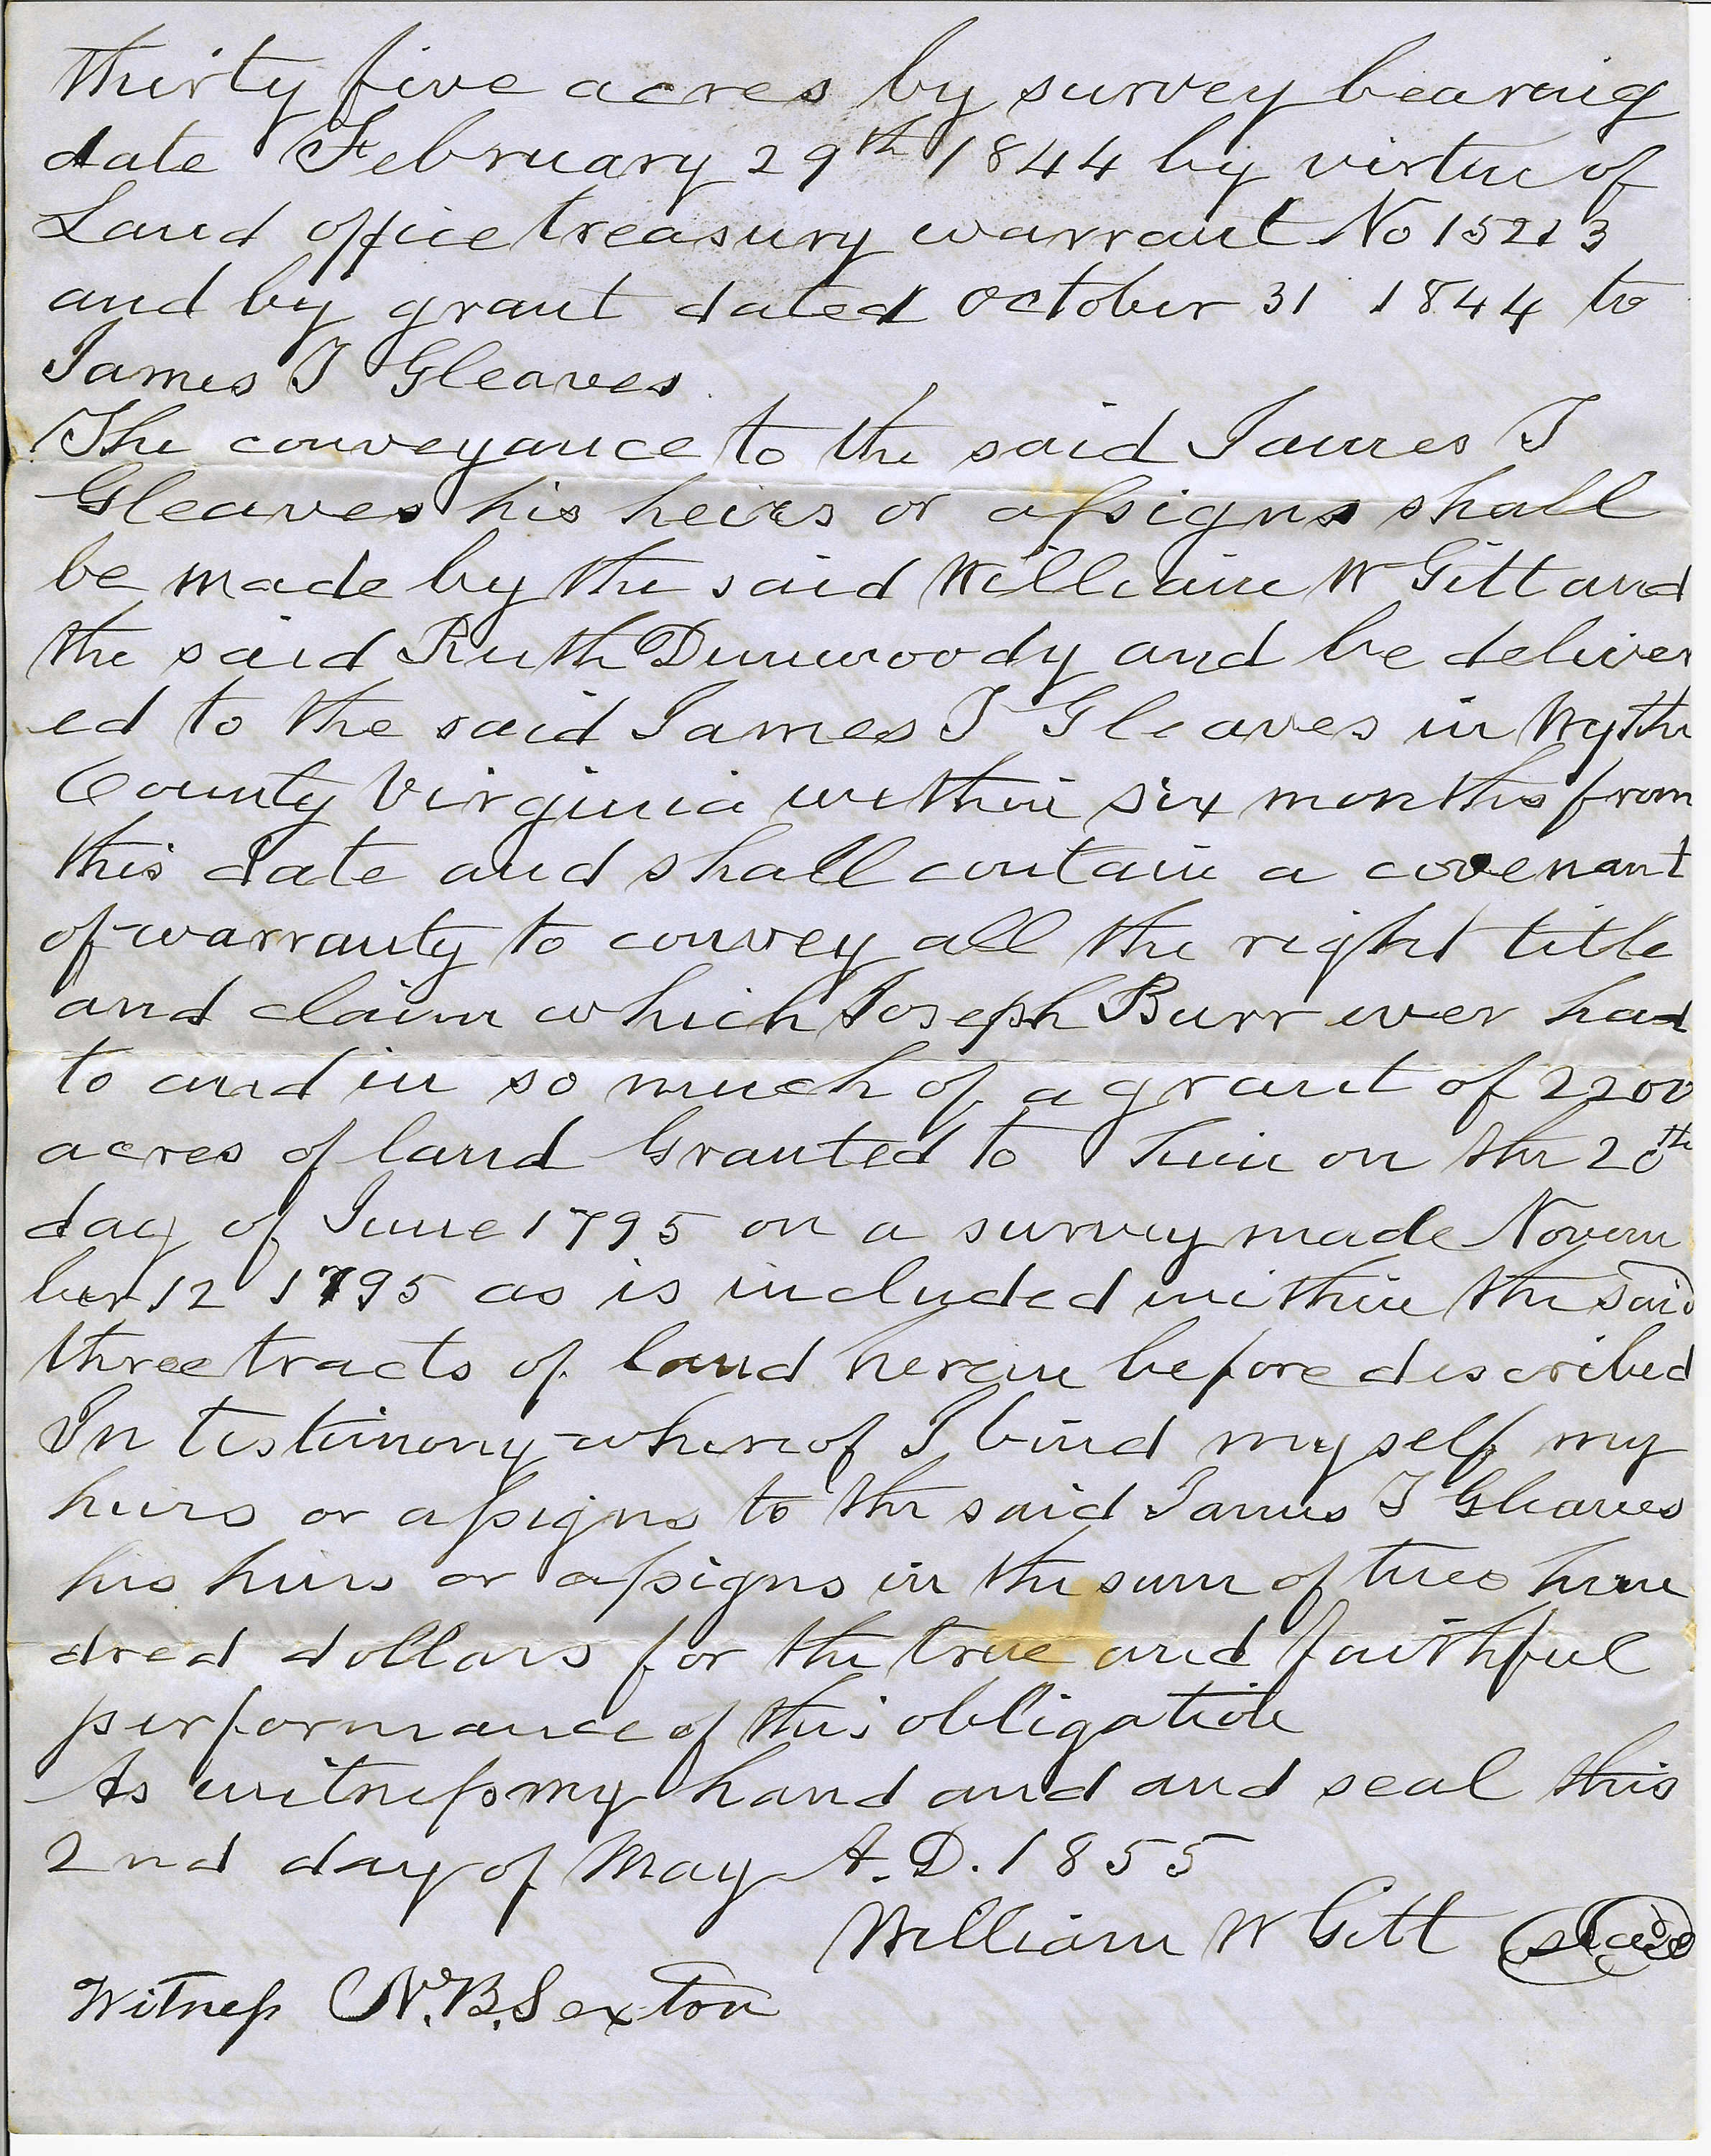 thirty five acres by survey bearing
date February 29th 1844 by virtue of
Land office treasury warrant No 15213
and by grant dated October 31 1844 to
James T Gleaves
The conveyance to the said James T
Gleaves his heirs or assigns shall
be made by the said William W Gitt and
the said Ruth Dunwoody and be deliver
ed to the said James T Gleaves in Wythe
County Virginia within six months from
this date and shall contain a covenant
of warranty to convey all the right title
and claim which Joseph Burr ever had
to and in so much of a grant of 2200
acres of land Granted to him on the 20th
day of June 1795 on a survey made Novem
ber 12 1795 as is included within the said
three tracts of land herein before described
In testimony whereof I bind myself my
heirs or assigns to the said James T Gleaves
his heirs or assigns in the sum of two hun
dred dollars for the true and faithful
performance of this obligation
As witness my hand and and seal this
2nd day of May A.D. 1855
William W Gitt Seal
Witness N. B. Sexton